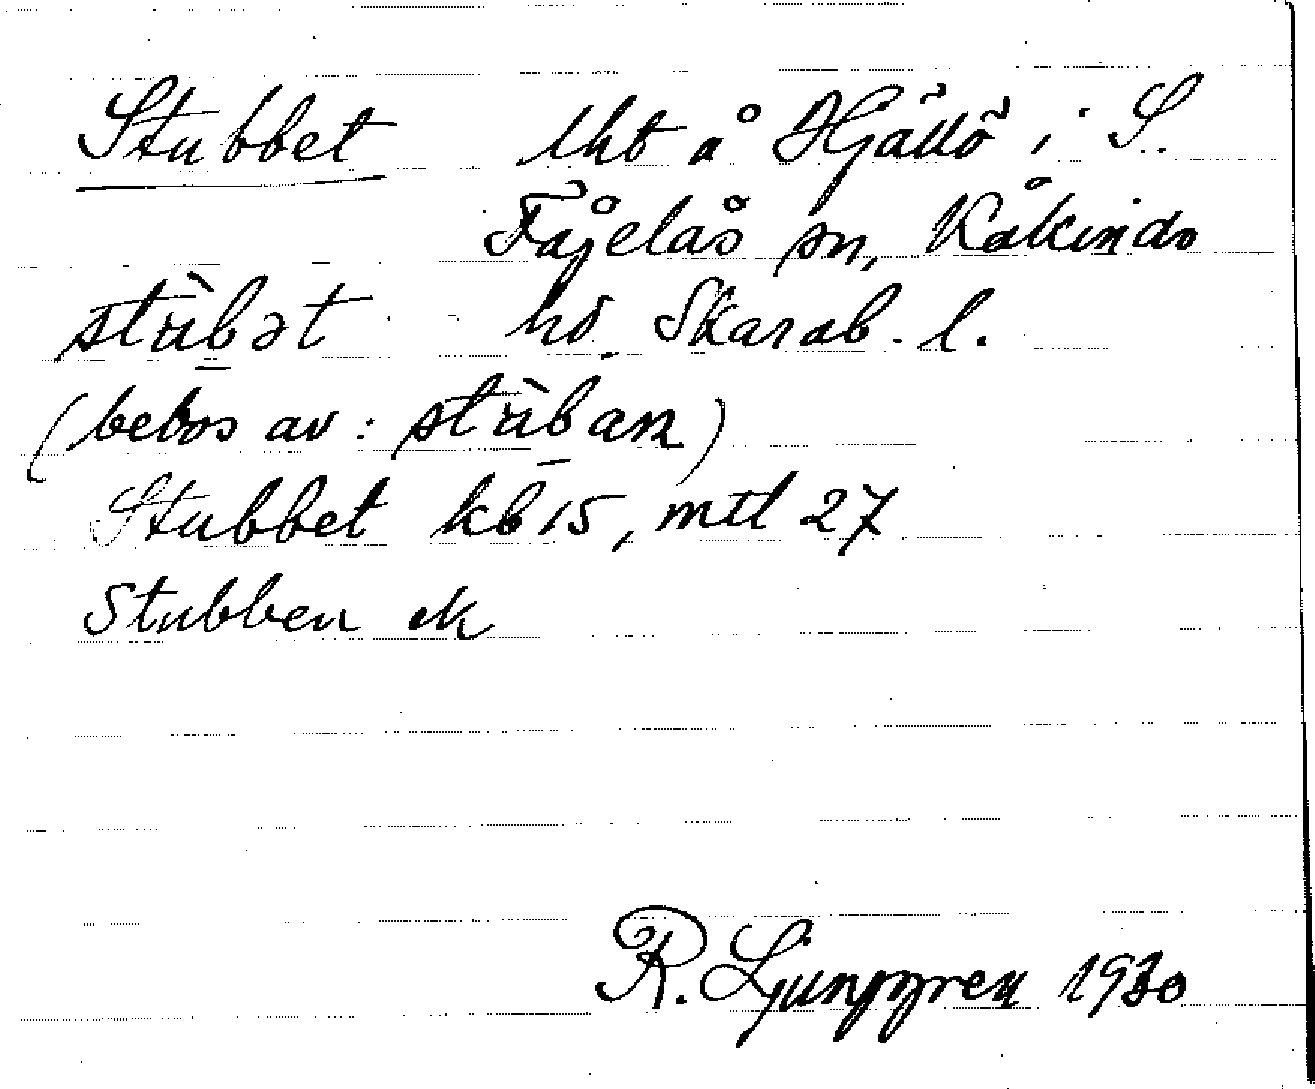 Stubbet lht å Hjällö i S.
Fågelås sn, Kåkinds
stùbət hd Skarab. l.
(bebos av: stùban)
Stubbet kb 15, mtl 27
Stubben ek
R. Ljunggren 1930